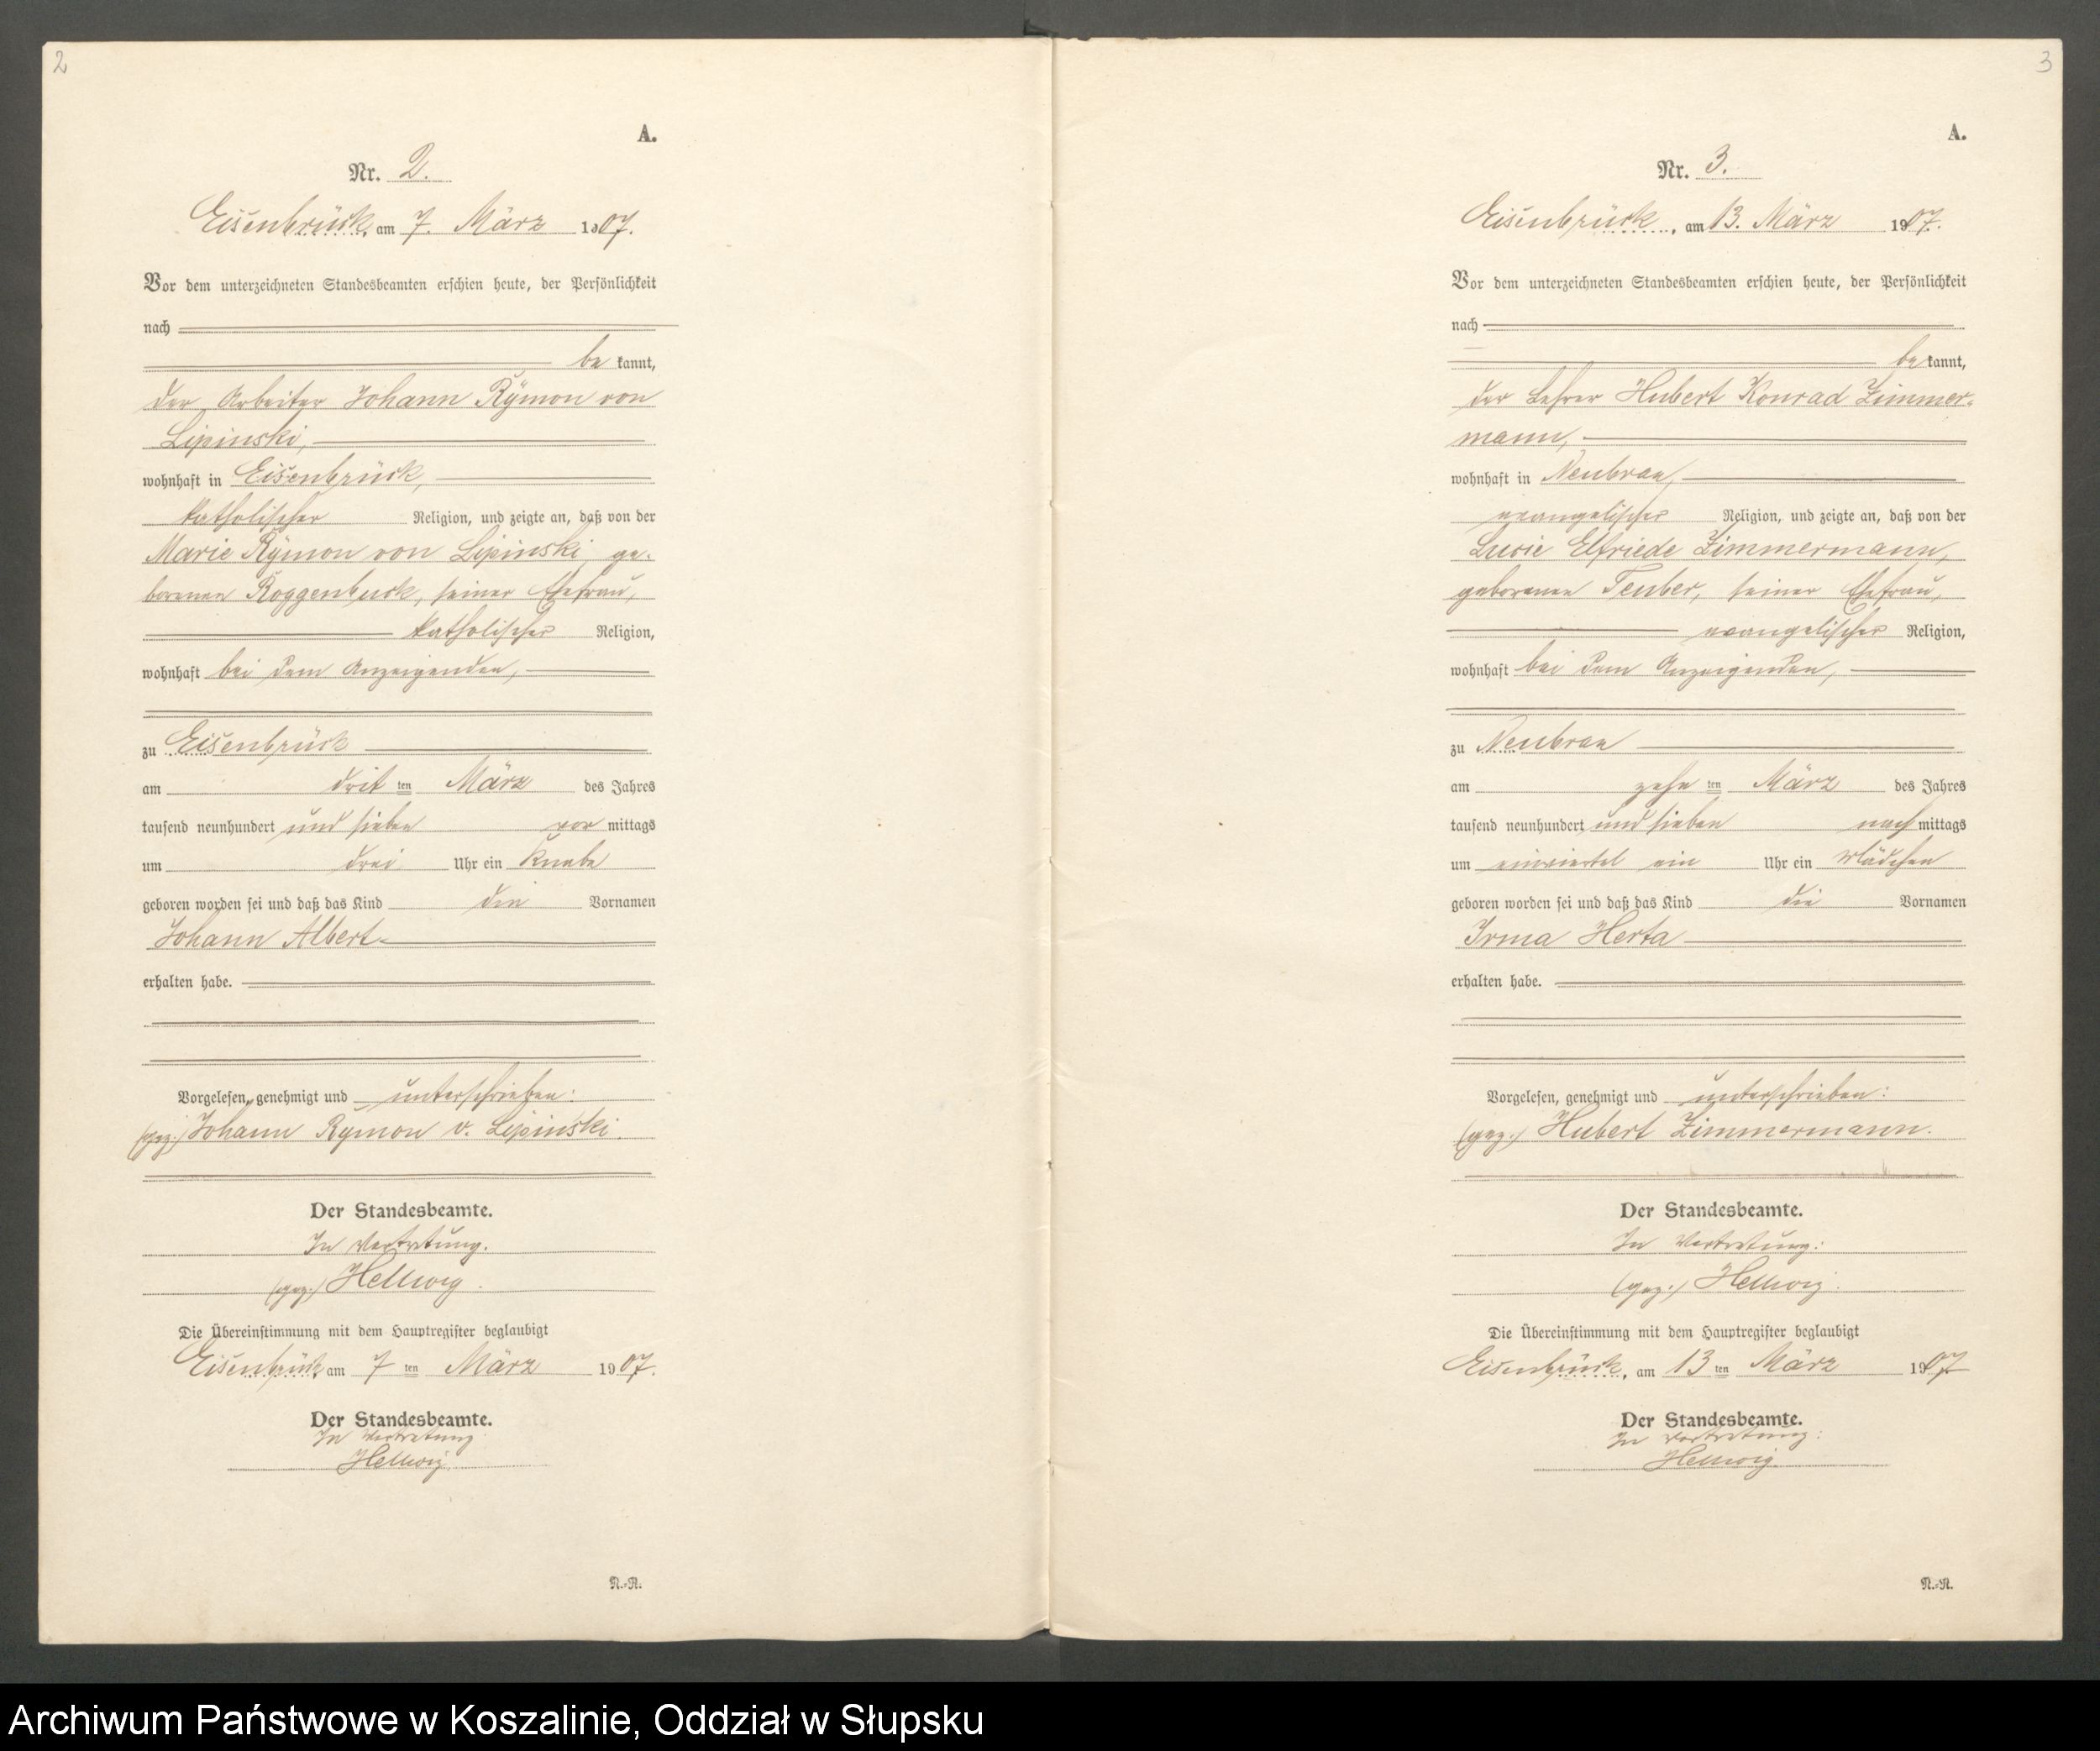 2
A.
Nr. 2.
Eisenbrück, am 7. März 1907.
Vor dem unterzeichneten Standesbeamten erschien heute, der Persönlichkeit
nach
be kannt,
der Arbeiter Johann Rÿmon von
Lipinski,
wohnhaft in Eisenbrück,
katholischer Religion, und zeigte an, daß von der
Marie Rÿmon von Lipinski ge-
borenen Roggenbuck, seiner Ehefrau,
katholischer Religion,
wohnhaft bei dem Anzeigenden,
zu Eisenbrück
am drit ten März des Jahres
tausend neunhundert und sieben vor mittags
um drei Uhr ein Knabe
geboren worden sei und daß das Kind die Vornamen
Johann Albert
erhalten habe.
Vorgelesen, genehmigt und unterschrieben:
(gez.) Johann Rymon v. Lipinski.
Der Standesbeamte.
In Vertretung.
(gez.) Hellwig.
Die Übereinstimmung mit dem Hauptregister beglaubigt
Eisenbrück, am 7 ten März 1907.
Der Standesbeamte.
In Vertretung
Hellwig.
N.-R.
3
A.
Nr. 3.
Eisenbrück, am 13. März 1907.
Vor dem unterzeichneten Standesbeamten erschien heute, der Persönlichkeit
nach
be kannt,
der Lehrer Hubert Konrad Zimmer-
mann,
wohnhaft in Neubraa,
evangelischer Religion, und zeigte an, daß von der
Lucie Elfriede Zimmermann,
geborenen Teuber, seiner Ehefrau,
evangelischer Religion,
wohnhaft bei dem Anzeigenden,
zu Neubraa
am zehn ten März des Jahres
tausend neunhundert und sieben nach mittags
um einviertel ein Uhr ein Mädchen
geboren worden sei und daß das Kind die Vornamen
Irma Herta
erhalten habe.
Vorgelesen, genehmigt und unterschrieben:
(gez.) Hubert Zimmermann.
Der Standesbeamte.
In Vertretung:
(gez.) Hellwig.
Die Übereinstimmung mit dem Hauptregister beglaubigt
Eisenbrück, am 13 ten März 1907
Der Standesbeamte.
In Vertretung:
Hellwig.
N.-R.
Archiwum Państwowe w Koszalinie, Oddział w Słupsku